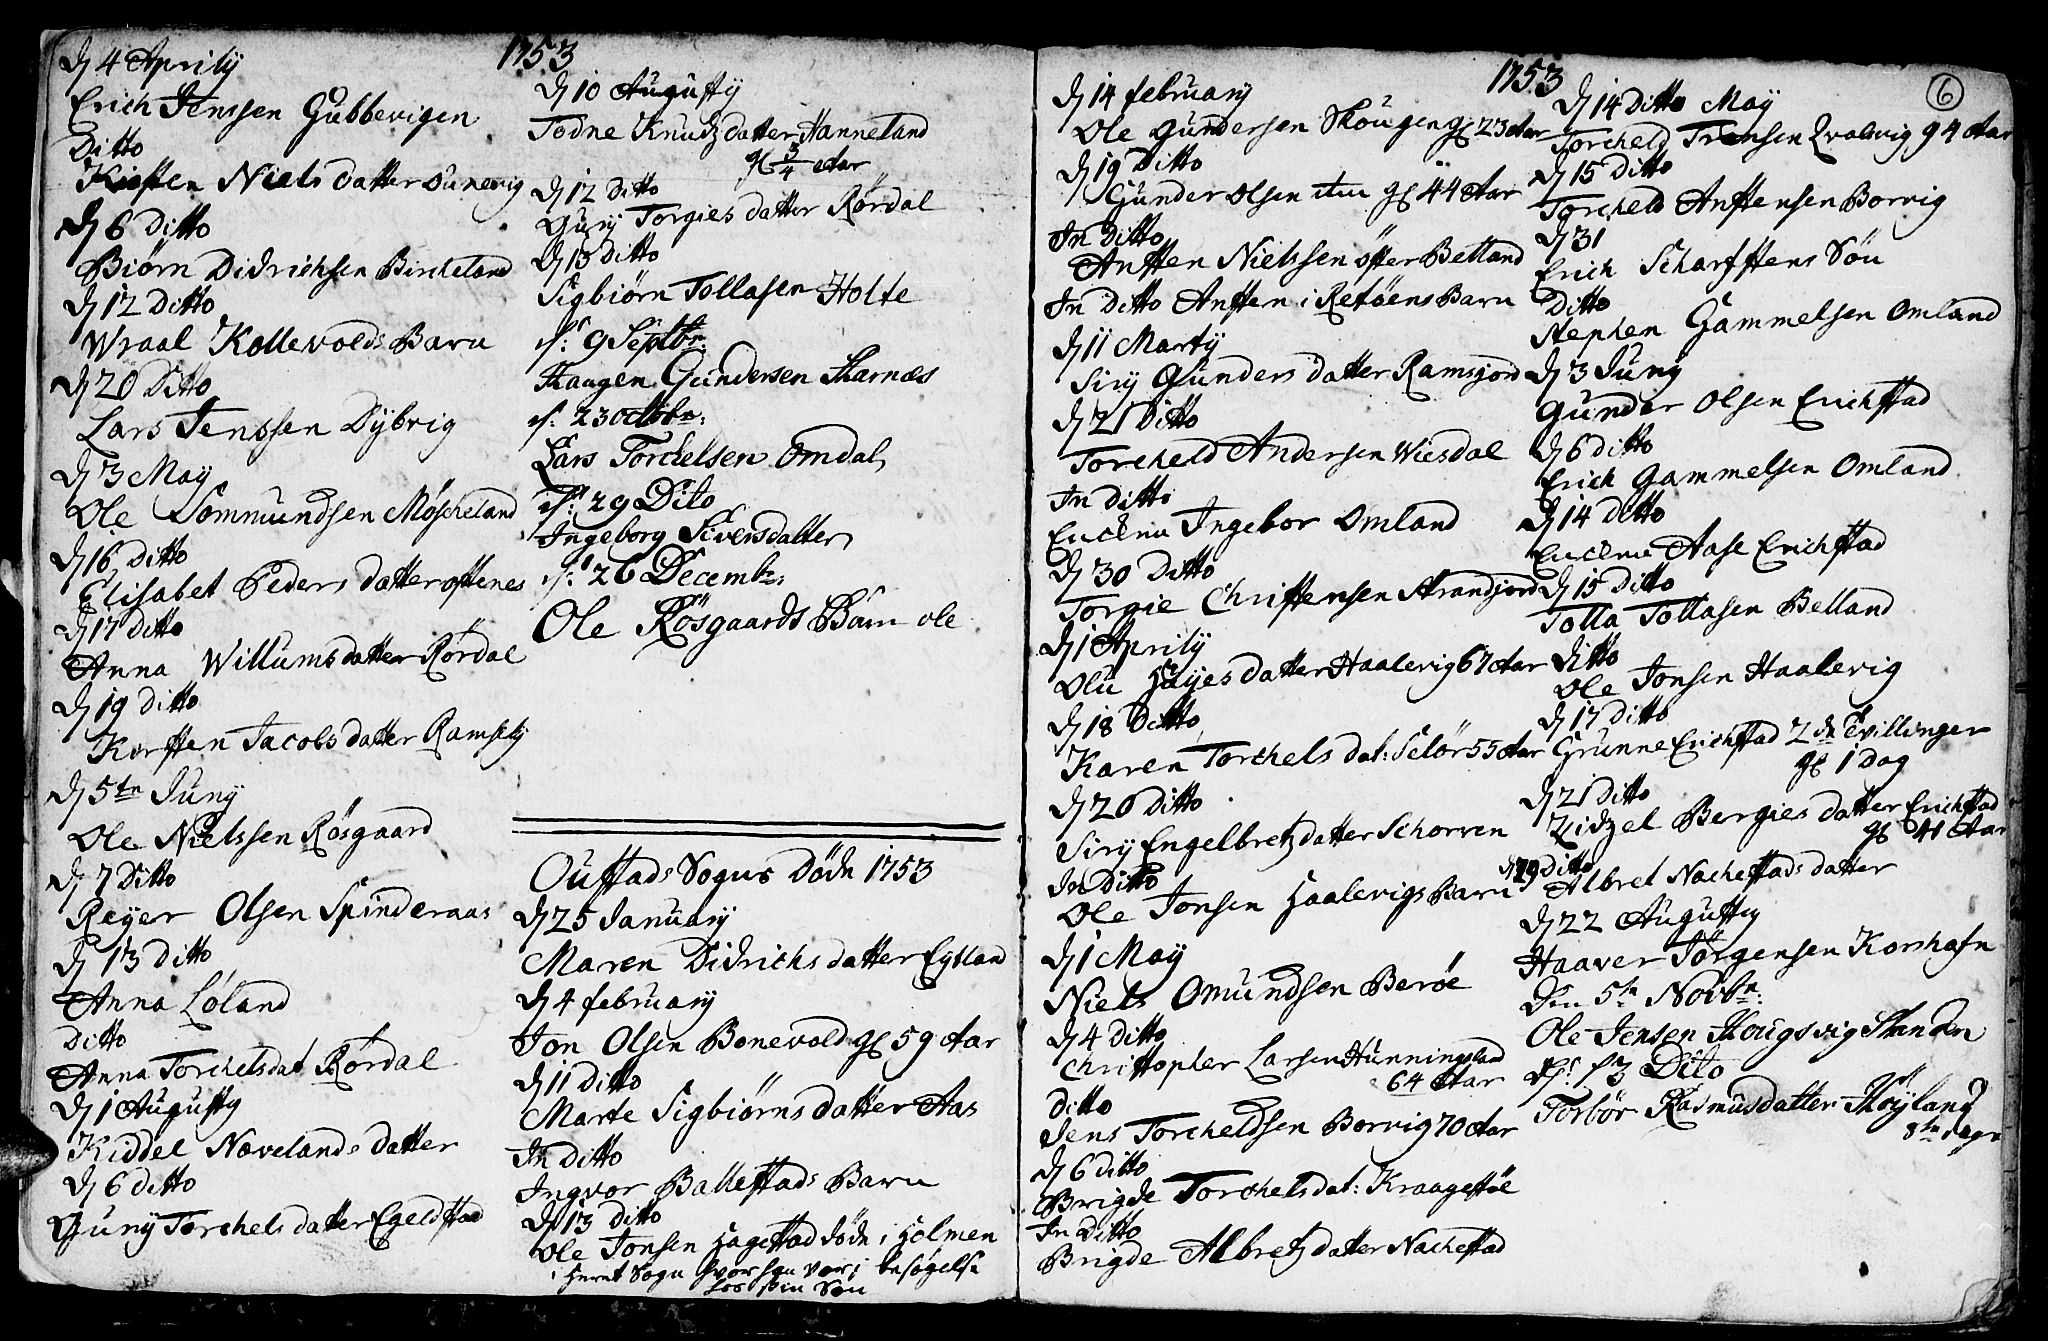 1753
d 4 Aprily
Erich Jenssen Gubbevigen
Ditto
Kisten Niels datter Dunevig
d 6 ditto
Biørn Didrichsen Bircheland
d 12 Ditto
Wraal Kollevolds Barn
d 20 Ditto
Lars Jenssen Dybvig
d 3 May
Ole Sommundsen Møscheland
d 16 Ditto
Elisabet Peders datter Østenes
d 17 ditto
Anna Willumsdatter Rørdal
d 19 ditto
Kersten Jacobsdatter Ramsely
d 5tn Juny
Ole Nielssen Røsgaard
d 7 Ditto
Reyer Olsen Spinderaas
d 13 Ditto
Anna Løland
Ditto
Anna Torchelsdat Rørdal
d 1 Augusty
Kiddel Novelands datter
d 6 ditto
Guny Torchels datter Egeldstad
d 10 Augusty
Todne Knudzdatter Hanneland
gl 3/4 Aar
d 12 ditto
Guny Torgiesdatter Rørdal
d 13 ditto
Sigbiørn Tollafsen Holte
d: 9 Septbr:
Haagen Gundersen Skarnæs
d: 23 octobr:
Lars Torchelsen Omdal
d: 29 Dito
Ingeborg Siversdatter
d: 26 Decembr
Ole Røsgaards Barn ole
Oufstads Sogns Døde 1753
d 25 January
Maren Didrichsdatter Eytland
d 4 february
Jon Olsen Bonevold gl 59 Aar
d 11 ditto
Marte Sigbiørnsdatter Aas
In ditto
Ingvor Ballestads Barn
d 13 ditto
Ole Jonsen Hagestad døde i Holmen
i Sogn hvor han var i besøgelse
hos sin Søn
1753
6
d 14 february
Ole Gundersen Skougen gl 23 Aar
d 19 Ditto
Gunder Olsen gl 44 Aar
In Ditto
Ansten Nielssen øster Betland
In Ditto Ansten i Retøens Barn
d 11 Marty
Siry Gunders datter Ramsjord
d 21 Ditto
Torcheld Andersen Wiesdal
In ditto
Encken Ingebor Omland
d 30 Ditto
Torgie Christensen Strandjord
d 1 Aprily
Olu Hayesdatter Haalevig 67 Aar
d 18 Ditto
Karen Torchels dat: Selør 55 Aar
d 20 ditto
Siry Engelbretzdatter Schorven
In Ditto
Ole Jonsen Haalevigs Barn
d 1 May
Niels Omundsen Berøe
d 4 Ditto
Christopher Larsen Hunningsland
64 Aar
ditto
Jens Torcheldsen Borvig 70 Aar
d 6 ditto
Brigde Torchelsdat: Kraagestøe
In Ditto
Brigde Albretzdatter Nachestad
d 14 Ditto May
Torcheld Trensen Qvalvig 94 Aar
d 15 Ditto
Torcheld Anstensen Borvig
d 31
Erich Scharfstens Søn
Ditto
Stephen Gammelsen Omland
d 3 Juny
Gunder Olsen Erichstad
d 6 ditto
Erich Gammelsen Omland
d 14 ditto
Encken Aase Erichstad
d 15 Ditto
Tolla Tollasen Betland
ditto
Ole Jonsen Haalevig
d 17 ditto
Grunne Erichstad 2de Tvillinger
gl 1 dag
d 21 ditto
Zidzel Bergiesdatter Erichstad
gl 41 Aar
d 29 Ditto
Albret Nachestads datter
d 22 Augusty
Haaver Jørgensen Korshafn
Den 5te Novbr:
Ole Jensen Skougsvig Standen
d: 13 Dito
Torbør Rasmusdatter Høyland
8te dage